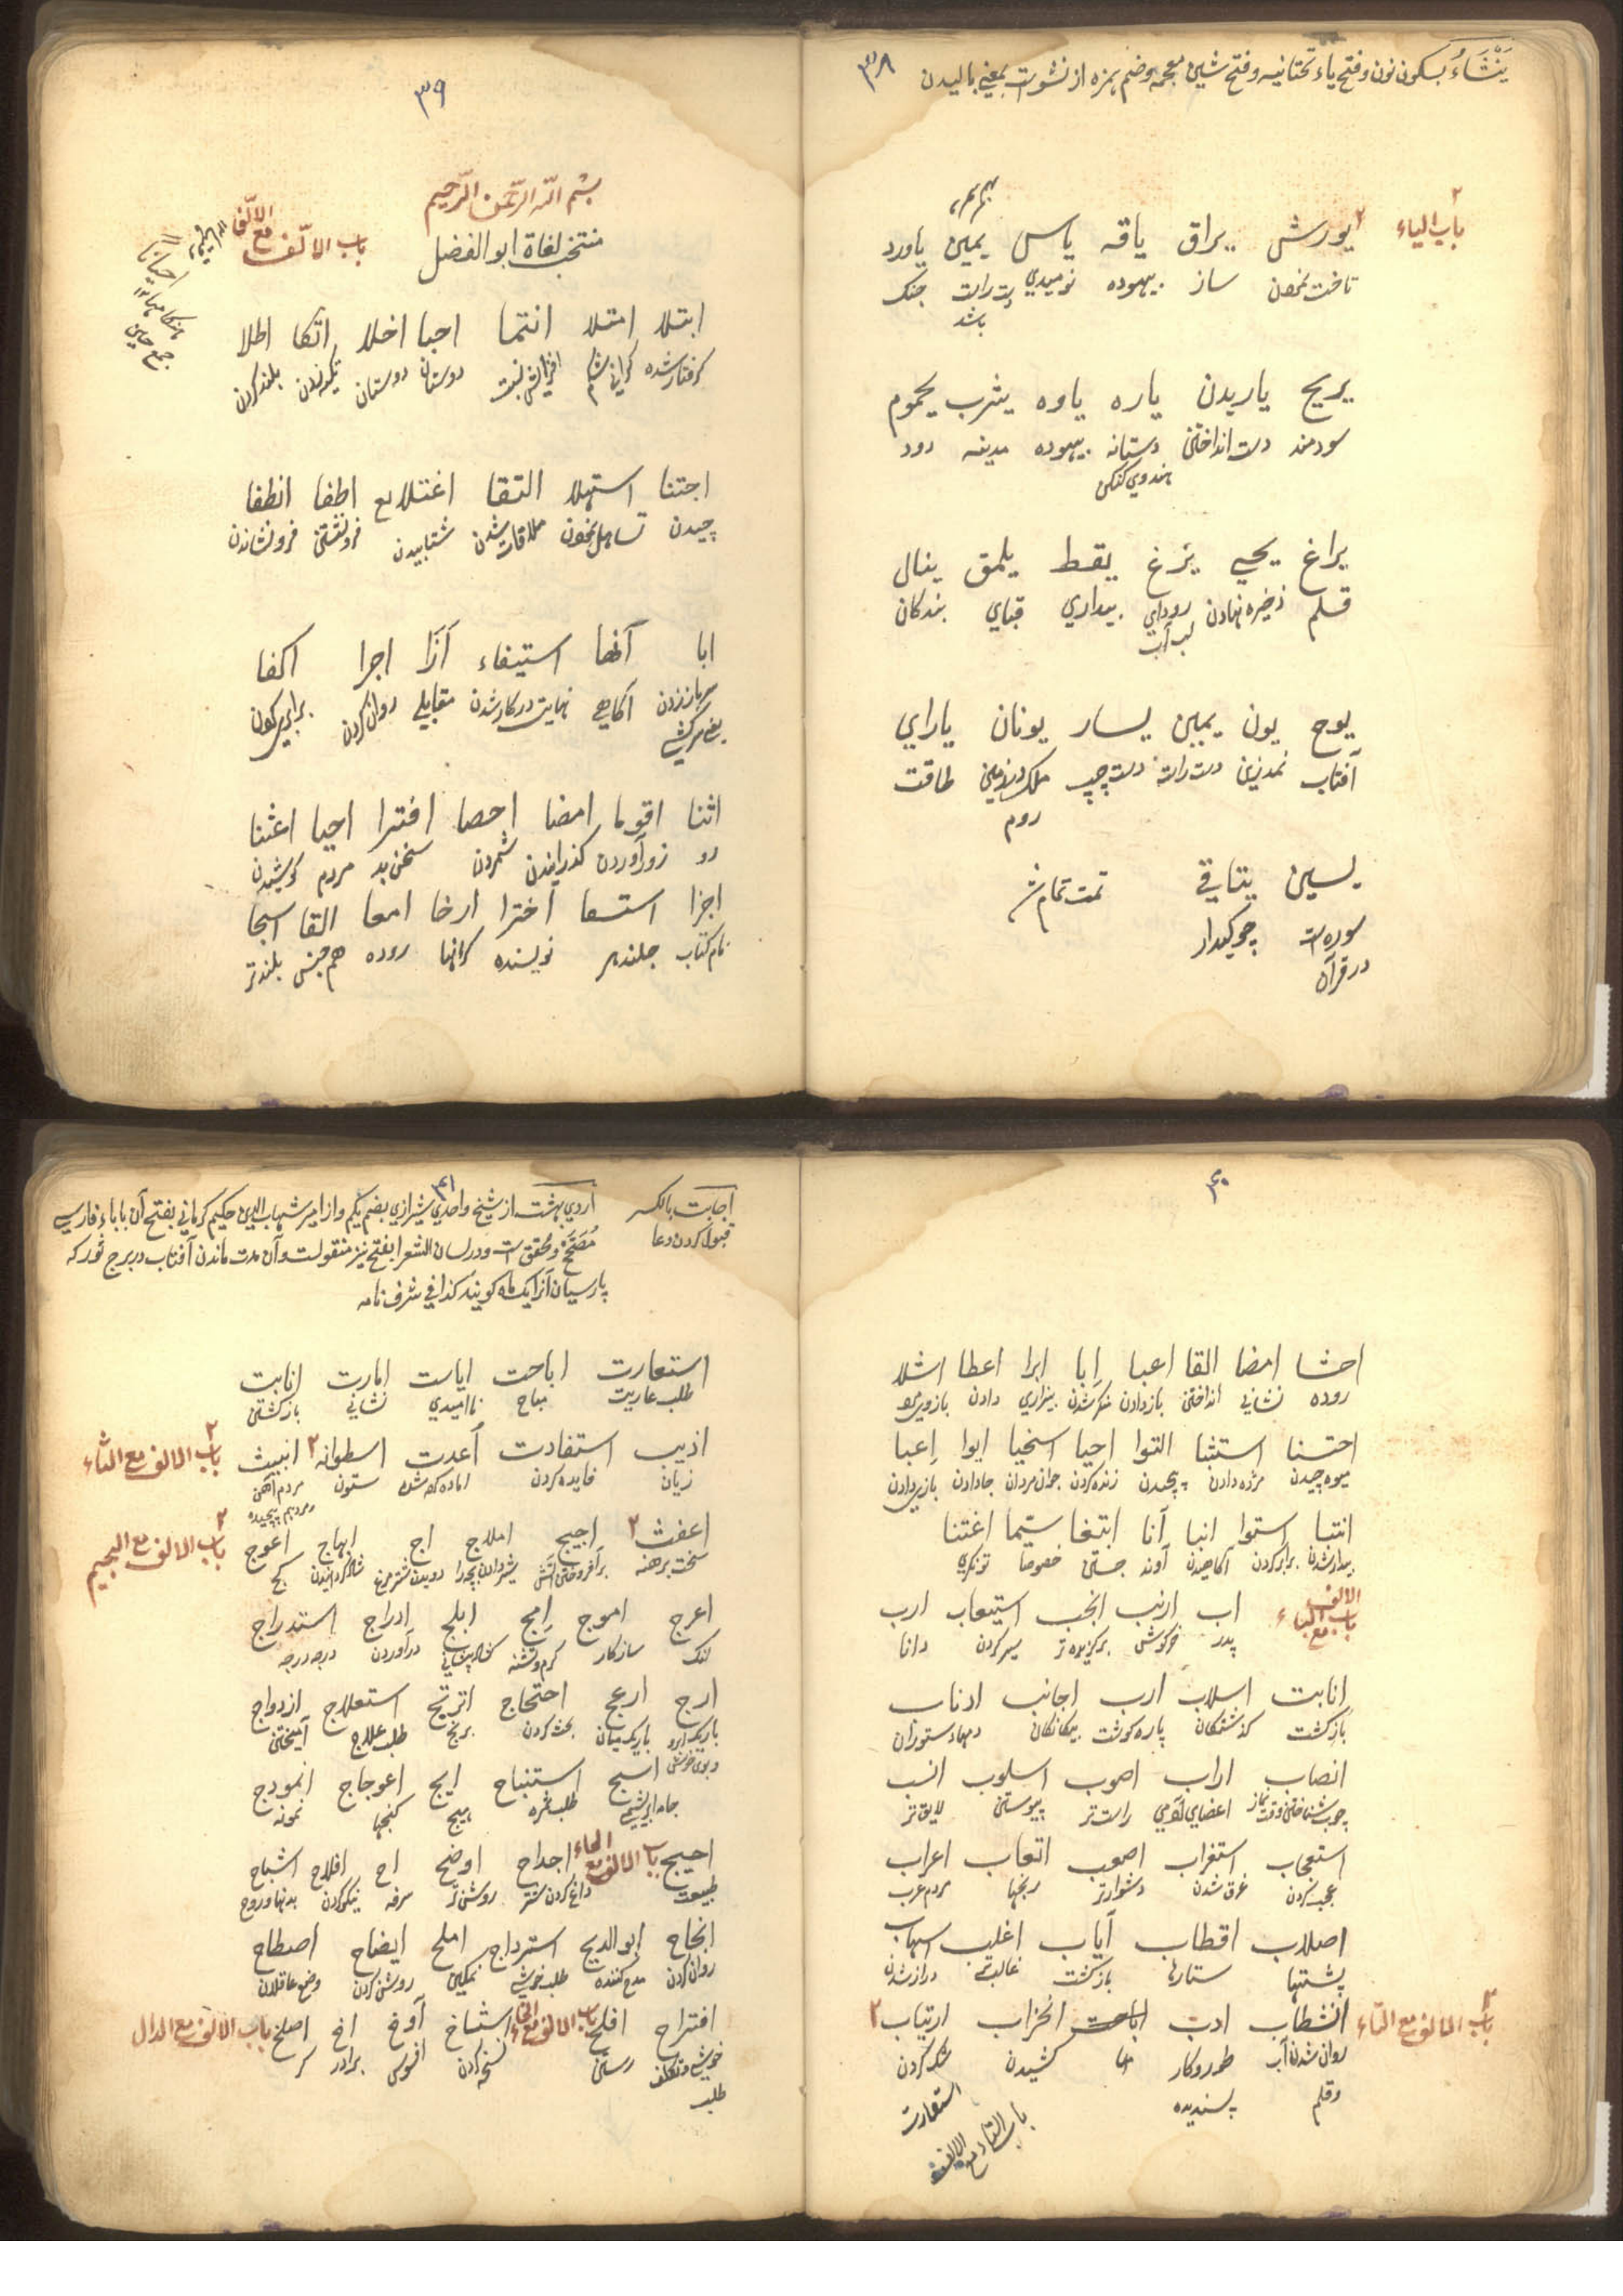 ۳۸
یَنْشَاءُ بسکون نون و فتح یاء تحتانیه و فتح شین معجمه و ضم همزه از نشوات بمعنی بالیدن
باب الیاء
یورش یراق یاقه یاس یمین یاورد
تاخت نمودن ساز بیهوده نومیدی جنک
باشد
یریح یاریدن یاره یاوه یثرب یحموم
سودمند دست انداختن دستانه بیهوده مدینه دود
هندوی کنکن
یراغ یحیی یزغ یقظ یلمق ینال
قلم ذخیره نهادن بیداری قبای بندکان
لب آب
یوح یون یمین یسار یونان یارای
آفتاب نمدزین دست راست دست چپ طاقت
روم
یسین یتاقی تمت تمام شد
سوره است چوکیدار
در قرآن
۳۹
بسم الله الرحمن الرحیم
منتخب لغاة ابوالفضل
باب الالف مع الالف
احیانا
جمع حین
ابتلا امتلا انتما احبا اخلا اتکا اطلا
کرفتار شده دوستان دوستان بلند کردن
اجتنا استهلا التقا اغتلا اطفا انطفا
چیدن تساهل نمودن ملاقات شدن شتابیدن فرونشستن فرونشاندن
ابا آنها استیفاء آزا اجرا اکفا
سرباز زدن آکاهی نهایت در کار شدن مقابلی روان کردن برابری کردن
یعنی سرکشی
اثنا اقوا امضا احصا افترا احیا اعثنا
دو زورآوردن کذرانیدن شمردن سخن بد مردم کوشیدن
اجزا استسعا اخترا ارخا امعا القا اسبحا
نام کتاب نویسنده کرانها روده هم جنس بلندتر
۴۰
احشا امضا القا اعبا اِبا ابرا اعطا اشلا
روده نشانی انداختن بازدادن منکر شدن بیزاری دادن
احتسنا استثنا التوا احیا اسخیا ایوا اِعبا
میوه چیدن مژده دادن پیچیدن زنده کردن جوان مردان جادادن
انتبا استوا انبا آنا ابتغا سیّما اغتنا
بیدار شدن برابر کردن آکاهیدن آوند جستن خصوصا تونکری
باب الالف مع الباء
اب ارنب انجب استیعاب ارب
پدر خرکوش برکزیده تر سیر کردن دانا
اِنابت اسلاب ارب اجانب ادناب
بازکشت کذشتکان پاره کوشت بیکانکان دمهاء ستوران
انصاب اراب اصوب اسلوب انسب
اعضای آدمی راست تر پیوستن لایق تر
استعجاب استغراب اصعب اتعاب اعراب
عجب کردن غرق شدن دشوارتر رنجها مردم عرب
اصلاب اقطاب آیاب اغلب اسهاب
پشتها ستارها بازکشت غالب تر دراز شدن
باب الالف مع التاء
انشطاب ادب اباحت انخراب ارتیاب
روان شدن آب طور و کار کشیدن شک کردن
و قلم پسندیده
استعارت
باب التاء مع الالف
۴۱
اجابت بالکسر
قبول کردن دعا
اردی بهشت از شیخ واحدی شیرازی بضم یکم و از امیر شهاب الدین حکیم کرمانی بفتح آن باباء فارسی
مُصَحَّح و محقق است و در لسان الشعرا بفتح نیز منقولست و آن مدت ماندن آفتاب در برج ثور که
پارسیان آنرا یک ماه کویند کذا فی شرف نامه
استعارت اباحت ایاست امارت انابت
طلب عاریت مباح ناامیدی نشانی بازکشتن
باب الالف مع الثاء
اذیب استفادت اُعدت اسطوانه انبیث
زیان فایده کردن اماده کرده شده ستون
باب الالف مع الجیم
اعفث اجیج املاج اج ابهاج اعوج
سخت برهنه برافروختن آتش شاد کردانیدن کج
اعرج اموج اِمج ابلج ادراج استدراج
لنک سازکار کرم و تشنه کشاده پیشانی درآوردن درجه درجه
ازج ارعج احتجاج اترج استعلاج ازدواج
باریک ابرو باریک میان بحث کردن ترنج طلب علاج آمیختن
و بوی خوش
اسبج استنباح ایج اعوجاج انموذج
جامه ابریشمی طلب ثمره هیچ کنجها نمونه
احیج باب الالف مع الحاء اجداح اوضح اح افلاح اشباح
طبیعت داغ کردن شتر روشن تر سرفه نیکی کردن بدنها و روح
انجاح ابوالدیح استرداح املح ایضاح اصطلاح
روان کردن مدح کننده طلب خوشی نمکین روشن کردن وضع عاقلان
افتراح افلح باب الالف مع الخاء استناخ آوخ اخ اصلخ باب الالف مع الدال
خوشی و تکلف رستن نسخه کردن افسوس برادر کر
طلب